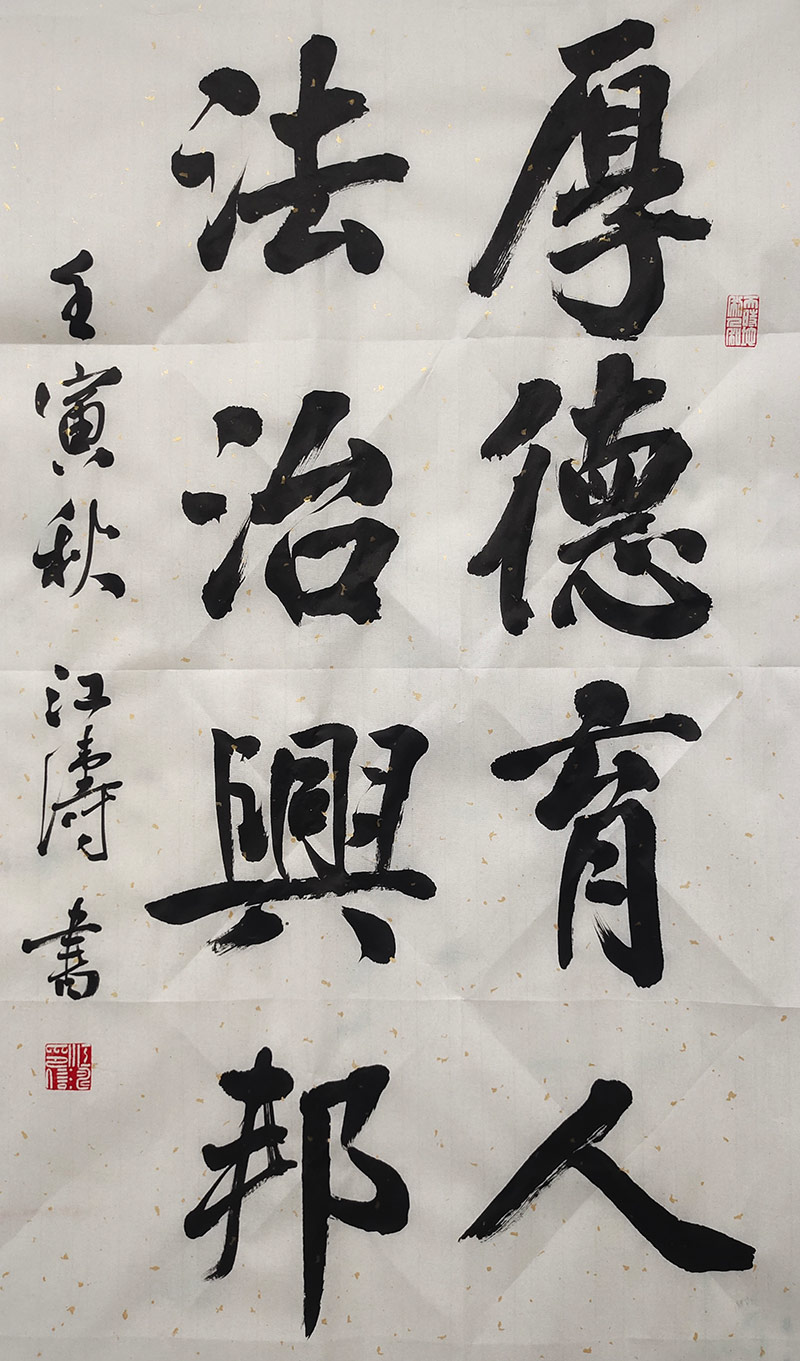 厚德育人
法治興邦
壬寅秋江濤書